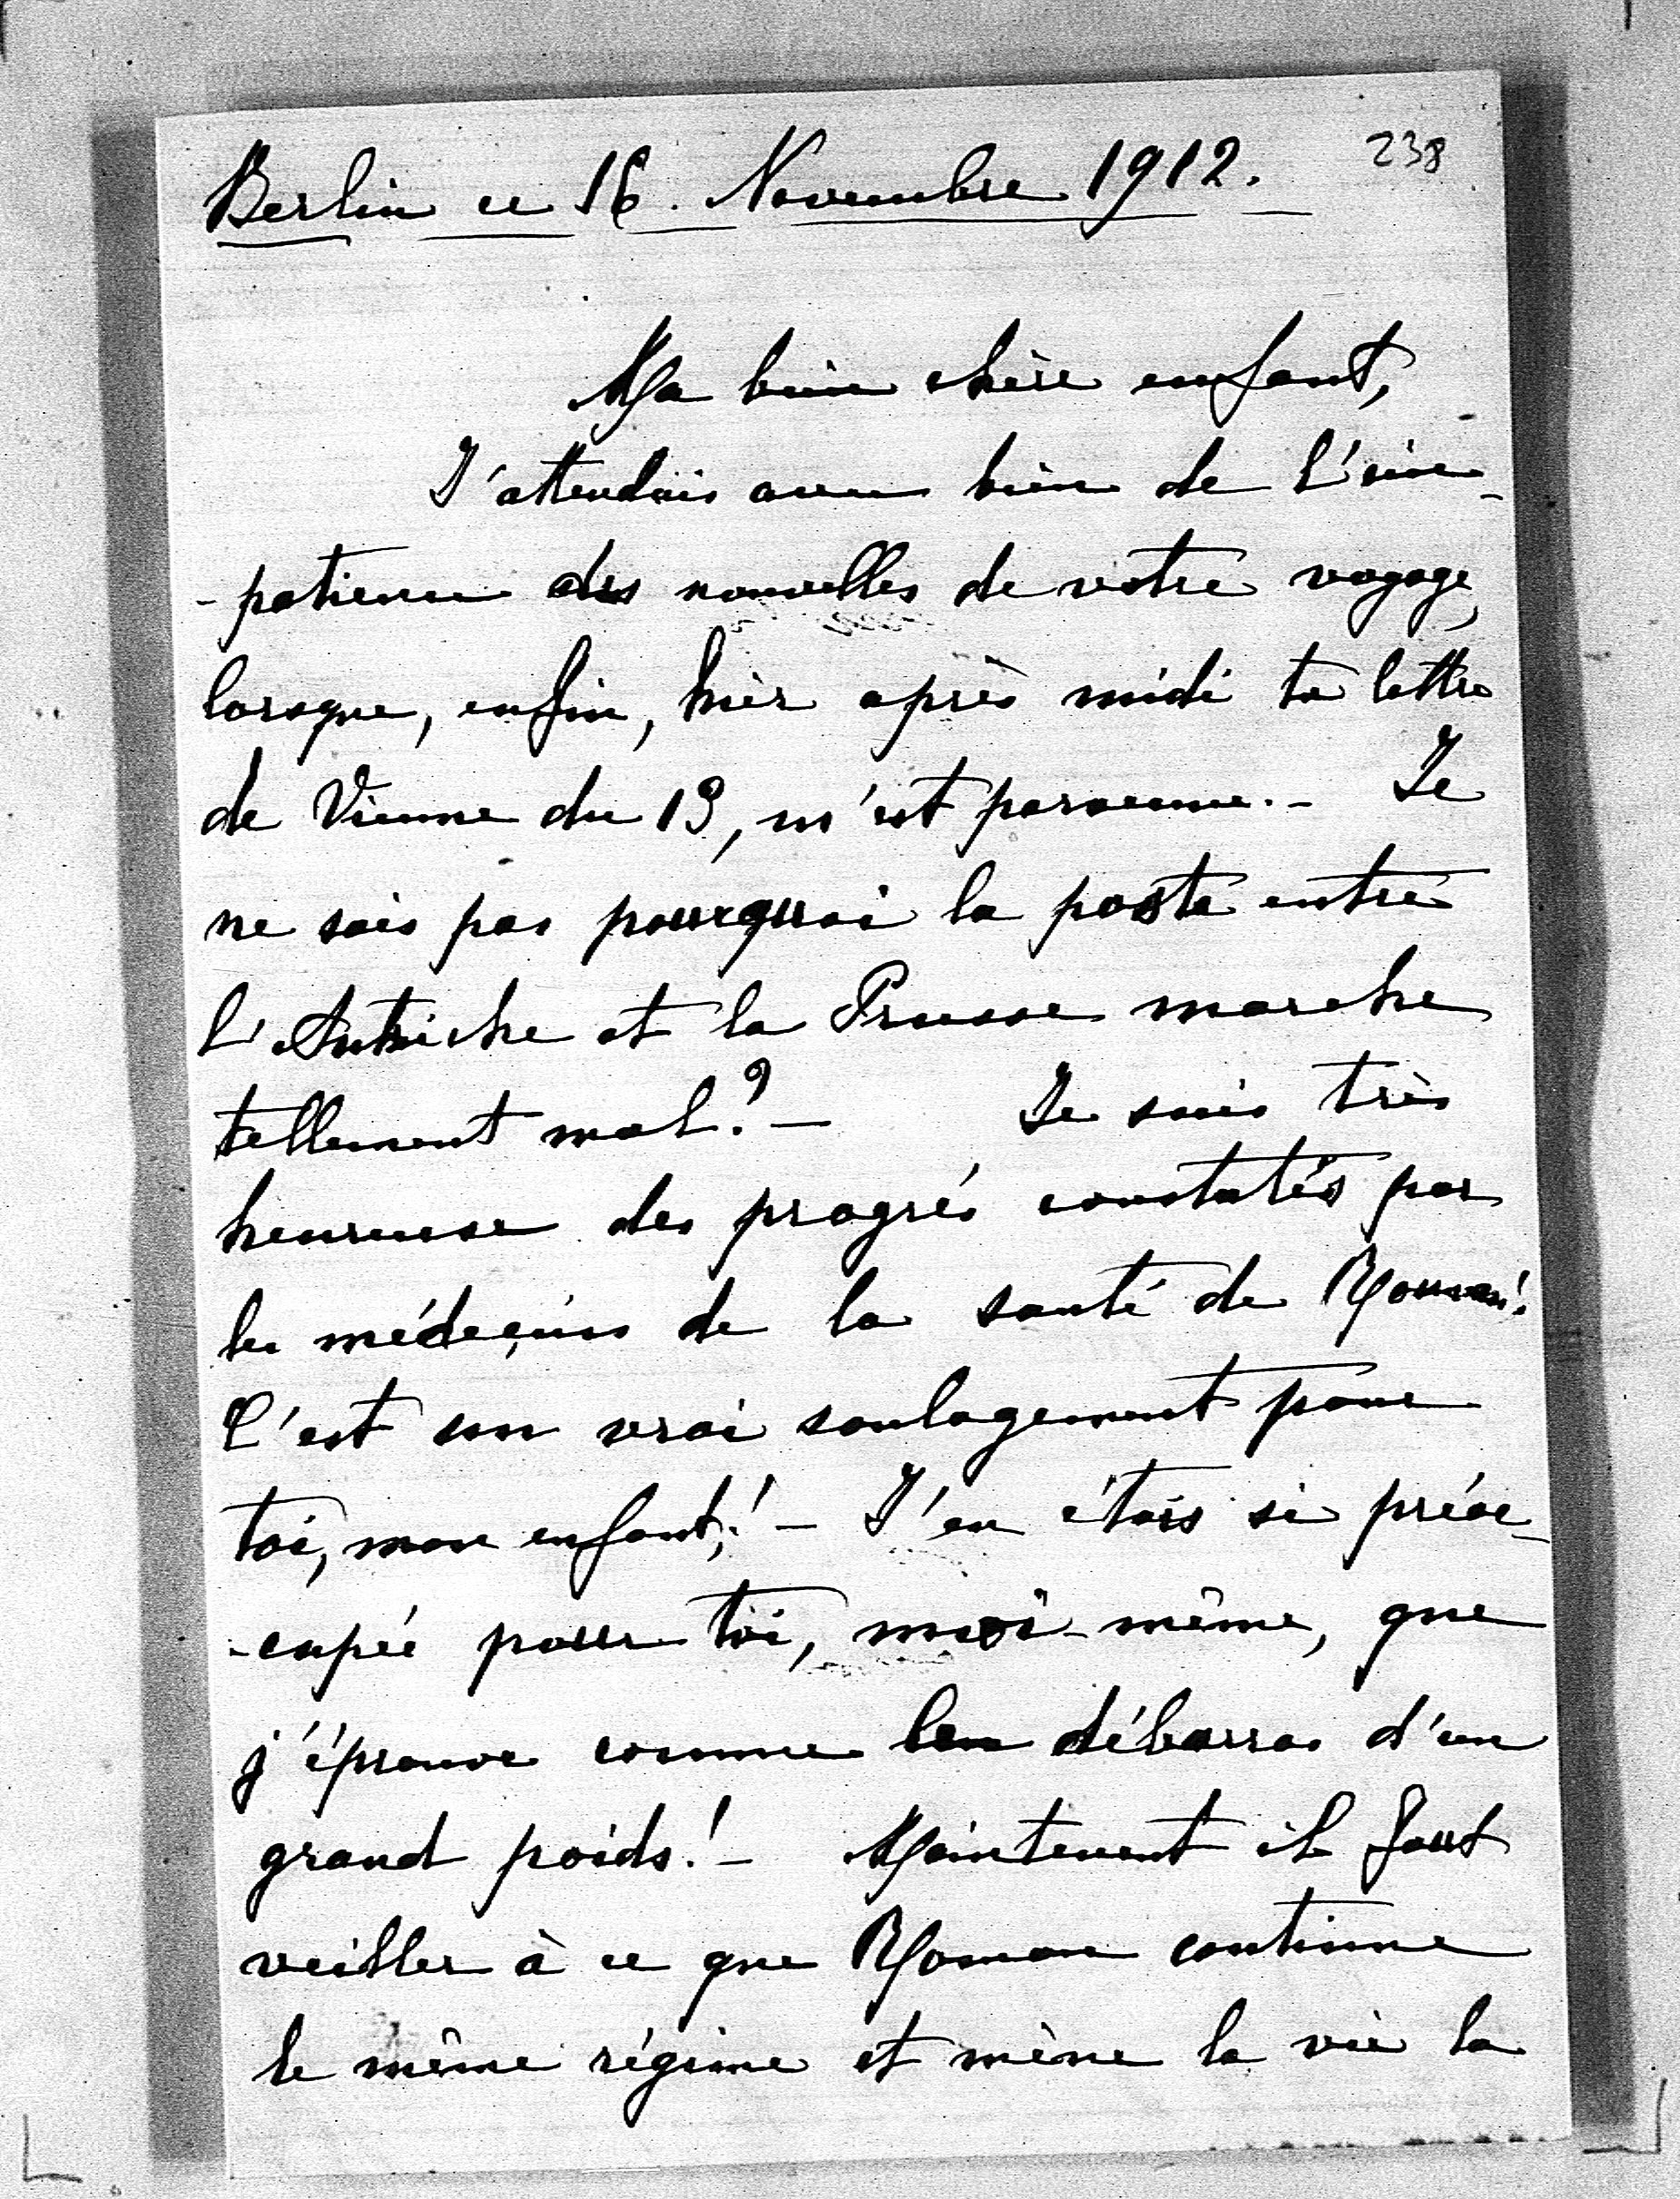 238
Berlin ce 16. Novembre 1912.
Ma bien chère enfant,
J'attendais avec bien de l'im-
-patience des nouvelles de votre voyage,
lorsque, enfin, hier après midi ta lettre
de Vienne du 13, m'est parvenue. - Je
ne sais pas pourquoi la poste entre
l'Autriche et la Prusse marche
tellement mal? - Je suis très
heureuse des progrés constatés par
les médecins de la santé de Roman!
C'est un vrai soulagement pour
toi, mon enfant! - J'en étais si préoc-
-cupée pour toi, moi-même, que
j'éprouve comme un débarras d'un
grand poids! - Maintenant il faut
veiller à ce que Roman continue
le même régime et mène la vie la